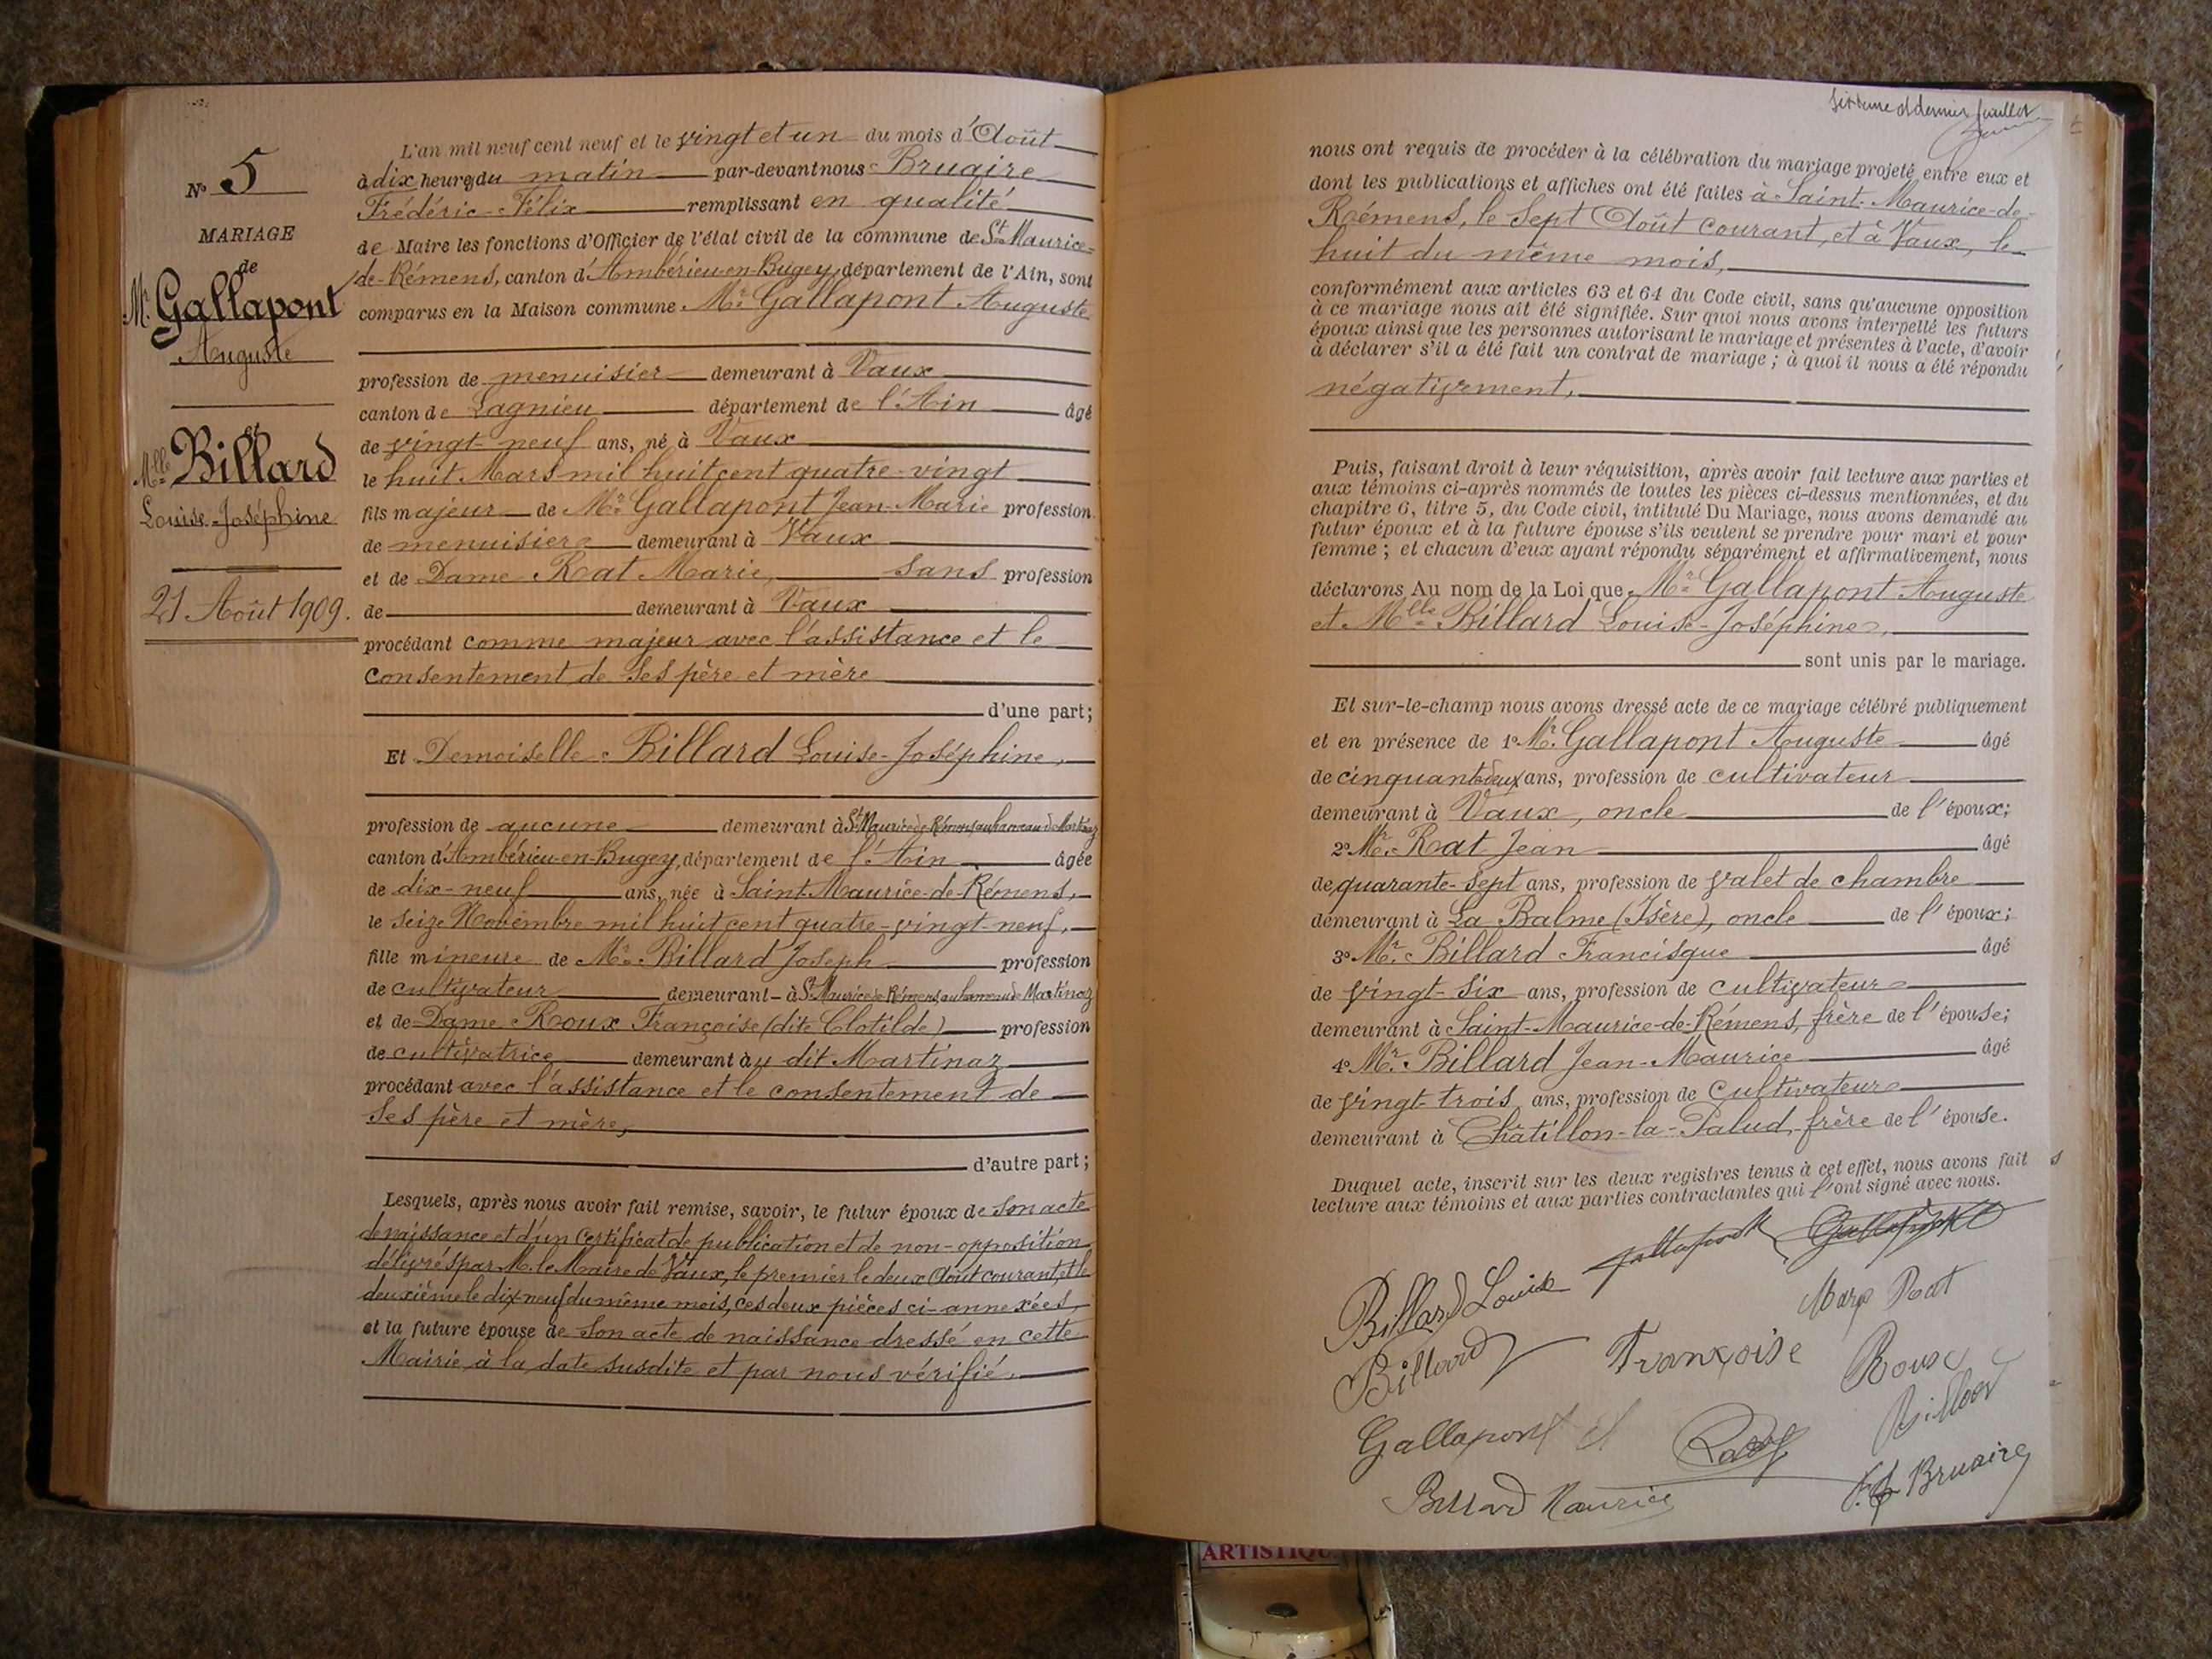 N° 5
MARIAGE
de
Mr. Gallapont
Auguste
et
Mlle Billard
Louise-Joséphine
21 Août 1909.
L'an mil neuf cent neuf et le vingt et un du mois d'Août
à dix heures du matin par-devant nous Bruaire
Frédéric-Félix remplissant en qualité
de Maire les fonctions d'Officier de l'état civil de la commune de St Maurice-
de-Rémens, canton d'Ambérieu-en-Bugey, département de l'Ain, sont
comparus en la Maison commune Mr. Gallapont Auguste
profession de menuisier demeurant à Vaux
canton de Lagnieu département de l'Ain âgé
de vingt-neuf ans, né à Vaux
le huit Mars mil huit cent quatre-vingt
fils majeur de Mr. Gallapont Jean-Marie profession
de menuisier demeurant à Vaux
et de Dame Rat Marie, sans profession
de demeurant à Vaux
procédant comme majeur avec l'assistance et le
consentement de ses père et mère
d'une part;
Et Demoiselle Billard Louise-Joséphine,
profession de aucune demeurant à St Maurice de Rémens au hameau de Martinaz
canton d'Ambérieu-en-Bugey, département de l'Ain âgée
de dix-neuf ans, née à Saint-Maurice-de-Rémens,
le seize Novembre mil huit cent quatre-vingt-neuf,
fille mineure de Mr. Billard Joseph profession
de cultivateur demeurant à St Maurice de Rémens au hameau de Martinaz
et de Dame Roux Françoise (dite Clotilde) profession
de cultivatrice demeurant au dit Martinaz
procédant avec l'assistance et le consentement de
ses père et mère,
d'autre part;
Lesquels, après nous avoir fait remise, savoir, le futur époux de son acte
de naissance et d'un certificat de publication et de non-opposition
délivrés par M. le Maire de Vaux, le premier le deux Août courant, et le
deuxième le dix neuf du même mois, ces deux pièces ci-annexées,
et la future épouse de son acte de naissance dressé en cette
Mairie à la date susdite et par nous vérifié.
sixième et dernier feuillet
nous ont requis de procéder à la célébration du mariage projeté entre eux et
dont les publications et affiches ont été faites à Saint-Maurice-de-
Rémens, le sept Août courant, et à Vaux, le
huit du même mois,
conformément aux articles 63 et 64 du Code civil, sans qu'aucune opposition
à ce mariage nous ait été signifiée. Sur quoi nous avons interpellé les futurs
époux ainsi que les personnes autorisant le mariage et présentes à l'acte, d'avoir
à déclarer s'il a été fait un contrat de mariage; à quoi il nous a été répondu
négativement.
Puis, faisant droit à leur réquisition, après avoir fait lecture aux parties et
aux témoins ci-après nommés de toutes les pièces ci-dessus mentionnées, et du
chapitre 6, titre 5, du Code civil, intitulé Du Mariage, nous avons demandé au
futur époux et à la future épouse s'ils veulent se prendre pour mari et pour
femme; et chacun d'eux ayant répondu séparément et affirmativement, nous
déclarons Au nom de la Loi que Mr. Gallapont Auguste
et Mlle Billard Louise-Joséphine,
sont unis par le mariage.
Et sur-le-champ nous avons dressé acte de ce mariage célébré publiquement
et en présence de 1° Mr. Gallapont Auguste âgé
de cinquante deux ans, profession de cultivateur
demeurant à Vaux, oncle de l'époux;
2° Mr. Rat Jean âgé
de quarante-sept ans, profession de valet de chambre
demeurant à La Balme (Isère), oncle de l'époux;
3° Mr. Billard Francisque âgé
de vingt-six ans, profession de cultivateur
demeurant à Saint-Maurice-de-Rémens, frère de l'épouse;
4° Mr. Billard Jean-Maurice âgé
de vingt-trois ans, profession de cultivateur
demeurant à Châtillon-la-Palud, frère de l'épouse.
Duquel acte, inscrit sur les deux registres tenus à cet effet, nous avons fait
lecture aux témoins et aux parties contractantes qui l'ont signé avec nous.
Billard Louise Gallapont Gallapont
Billard Françoise Roux Marie Rat
Gallapont Billard
Billard Maurice F. Bruaire
ARTISTIQU